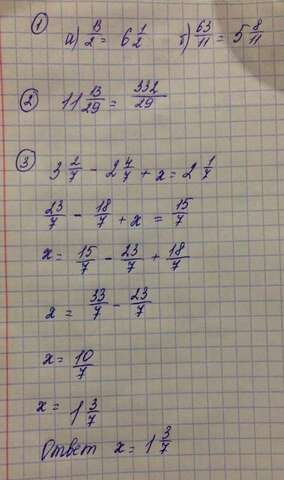 ① а) 13/2 = 6 1/2 б) 63/11 = 5 8/11
② 11 13/29 = 332/29
③ 3 2/7 - 2 4/7 + x = 2 1/7
23/7 - 18/7 + x = 15/7
x = 15/7 - 23/7 + 18/7
x = 33/7 - 23/7
x = 10/7
x = 1 3/7
Ответ x = 1 3/7